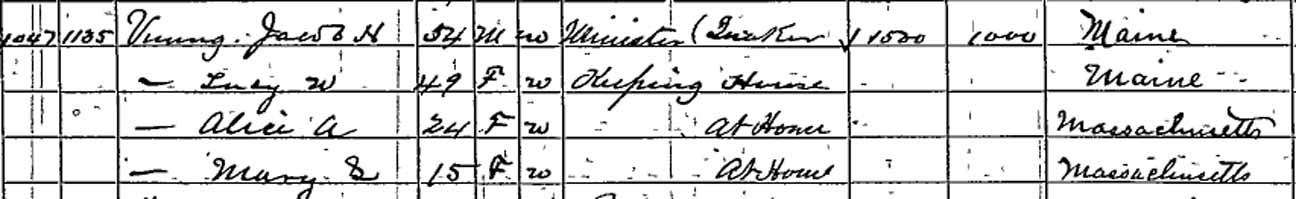 1047 1135 Vining. Jacob H 54 M W Minister (Quaker 1500 1000 Maine
— Lucy W 49 F W Keeping House Maine
— Alice A 24 F W At Home Massachusetts
— Mary 15 F W At Home Massachusetts